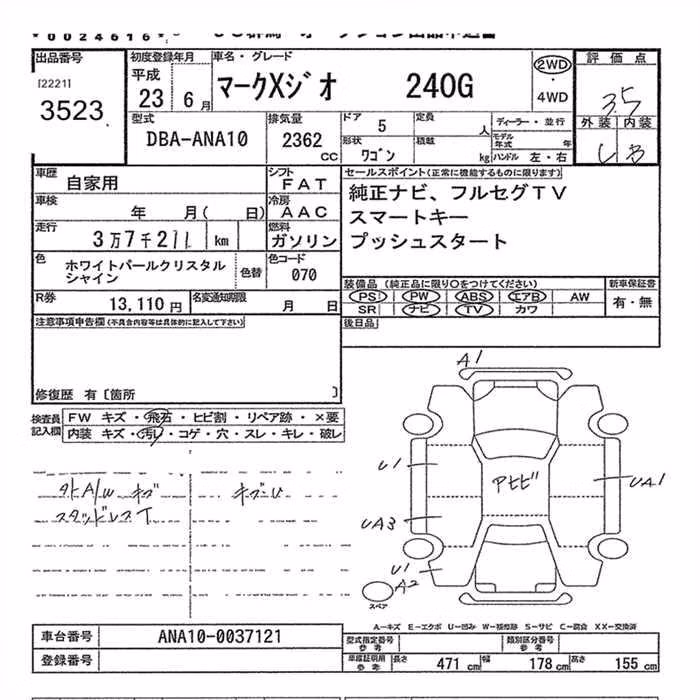 00024616
出品番号
[2221]
3523
初度登録年月
平成
23 6月
車名・グレード
マークXジオ 240G
2WD
4WD
評価点
3.5
外装 内装
B
型式
DBA-ANA10
排気量
2362 CC
ドア 5
形状 ワゴン
定員 人
積載 kg
ディーラー・並行
モデル年式 年
ハンドル 左・右
車歴 自家用
シフト FAT
車検 年 月( 日)
冷房 AAC
走行 3万7千211 km
燃料 ガソリン
色 ホワイトパールクリスタルシャイン
色替
色コード 070
R券 13,110円
名変通知期限 月 日
セールスポイント(正常に機能するものに限ります)
純正ナビ、フルセグTV
スマートキー
プッシュスタート
装備品(純正品に限り○をつけてください)
PS PW ABS エアB AW
SR ナビ TV カワ
新車保証書
有・無
後日品
注意事項申告欄(不具合内容等は具体的に記入して下さい)
修復歴 有〔箇所 〕
検査員記入欄
FW キズ・飛石・ヒビ割・リペア跡・×要
内装 キズ・汚レ・コゲ・穴・スレ・キレ・破レ
外A/W キズ
スタッドレスT
キズU
A1
U1
UA3
U1
A2
UA1
アセビ
スペア
A-キズ E-エクボ U-凹み W-補修跡 S-サビ C-腐食 XX-交換済
車台番号 ANA10-0037121
登録番号
型式指定番号 参考
類別区分番号 参考
車庫証明用 参考
長さ 471 cm
幅 178 cm
高さ 155 cm